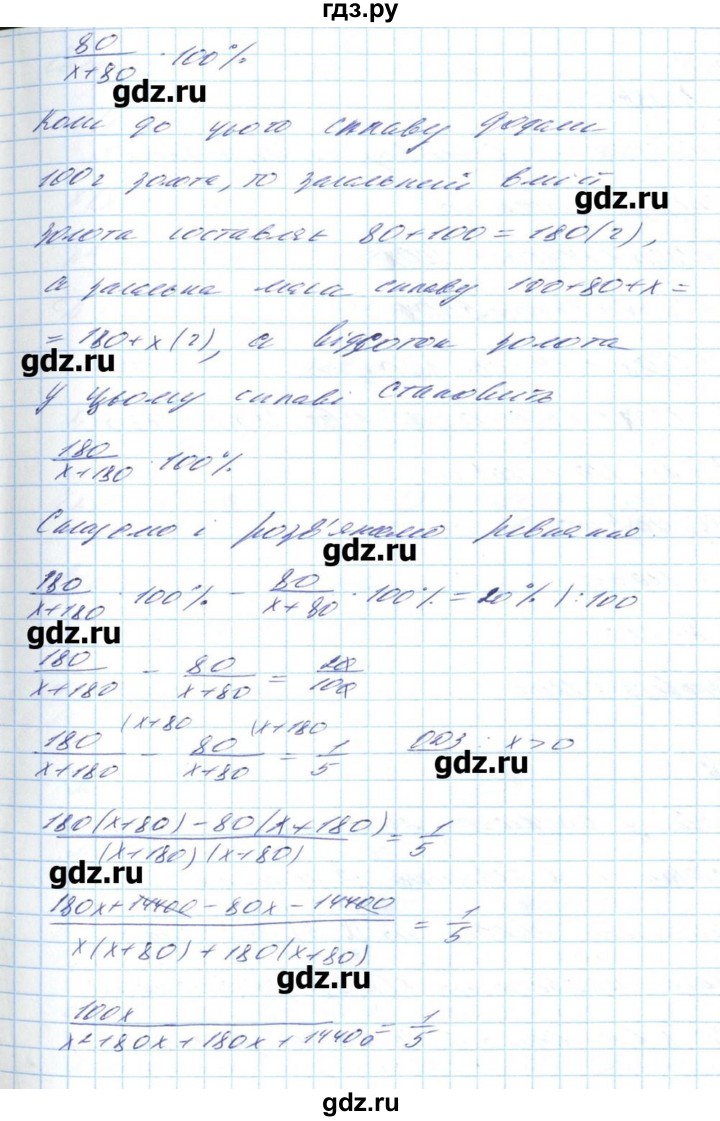 гдз.ру
80/(x+80) · 100%
gdz.ru
Коли до цього сплаву додали
100г золота, то загальний вміст
gdz.ru
золота составляє 80+100=180(г),
а загальна маса сплаву 100+80+x=
=180+x(г), а відсоток золота
gdz.ru
у цьому сплаві становить
180/(x+180) · 100%
Складемо і розв'яжемо рівняння.
gdz.ru
180/(x+180) · 100% - 80/(x+80) · 100% = 20% |:100
gdz.ru
180/(x+180) - 80/(x+80) = 20/100
180/(x+180) (x+80 - 80/(x+80) (x+180 = 1/5 ОДЗ: x>0
gdz.ru
(180(x+80)-80(x+180))/((x+180)(x+80)) = 1/5
gdz.ru
(180x+14400-80x-14400)/(x(x+80)+180(x+80)) = 1/5
gdz.ru
100x/(x²+80x+180x+14400) = 1/5
gdz.ru